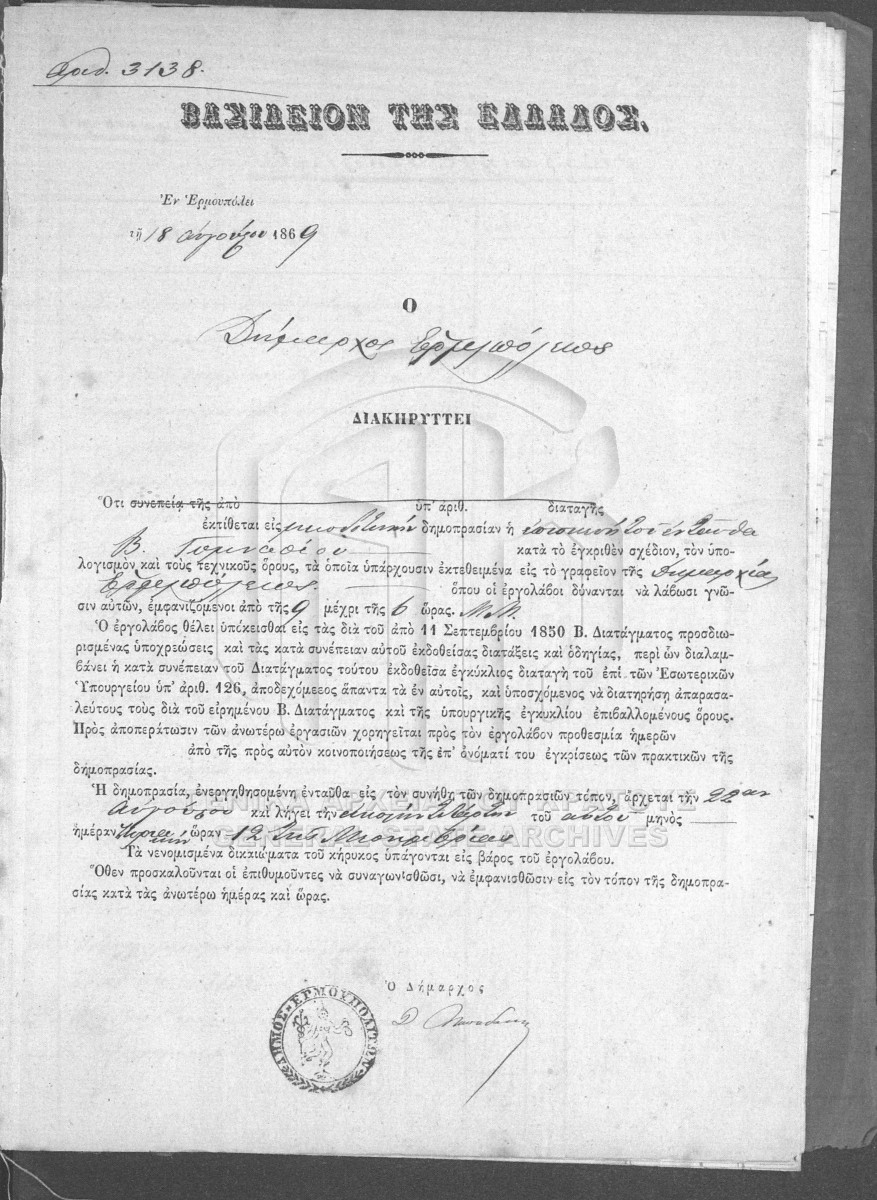 Αριθ. 3138.
ΒΑΣΙΛΕΙΟΝ ΤΗΣ ΕΛΛΑΔΟΣ.
Ἐν Ἑρμουπόλει
τῇ 18 Αὐγούστου 1869
Ο
Δήμαρχος Ἑρμουπόλεως
ΔΙΑΚΗΡΥΤΤΕΙ
Ὅτι συνεπείᾳ τῆς ἀπὸ ὑπ’ ἀριθ. διαταγῆς
ἐκτίθεται εἰς μειοδοτικὴν δημοπρασίαν ἡ ἐπισκευὴ τοῦ ἐνταῦθα
Β. Γυμνασίου κατὰ τὸ ἐγκριθὲν σχέδιον, τὸν ὑπο-
λογισμὸν καὶ τοὺς τεχνικοὺς ὅρους, τὰ ὁποῖα ὑπάρχουσιν ἐκτεθειμένα εἰς τὸ γραφεῖον τῆς Δημαρχίας
Ἑρμουπόλεως. ὅπου οἱ ἐργολάβοι δύνανται νὰ λάβωσι γνῶ-
σιν αὐτῶν, ἐμφανιζόμενοι ἀπὸ τῆς 9 μέχρι τῆς 6 ὥρας. Μ.Μ.
Ὁ ἐργολάβος θέλει ὑπόκεισθαι εἰς τὰς διὰ τοῦ ἀπὸ 11 Σεπτεμβρίου 1850 Β. Διατάγματος προσδιω-
ρισμένας ὑποχρεώσεις καὶ τὰς κατὰ συνέπειαν αὐτοῦ ἐκδοθείσας διατάξεις καὶ ὁδηγίας, περὶ ὧν διαλαμ-
βάνει ἡ κατὰ συνέπειαν τοῦ Διατάγματος τούτου ἐκδοθεῖσα ἐγκύκλιος διαταγὴ τοῦ ἐπὶ τῶν Ἐσωτερικῶν
Ὑπουργείου ὑπ’ ἀριθ. 126, ἀποδεχόμεεος ἅπαντα τὰ ἐν αὐτοῖς, καὶ ὑποσχόμενος νὰ διατηρήσῃ ἀπαρασα-
λεύτους τοὺς διὰ τοῦ εἰρημένου Β. Διατάγματος καὶ τῆς ὑπουργικῆς ἐγκυκλίου ἐπιβαλλομένους ὅρους.
Πρὸς ἀποπεράτωσιν τῶν ἀνωτέρω ἐργασιῶν χορηγεῖται πρὸς τὸν ἐργολάβον προθεσμία ἡμερῶν
ἀπὸ τῆς πρὸς αὐτὸν κοινοποιήσεως τῆς ἐπ’ ὀνόματί του ἐγκρίσεως τῶν πρακτικῶν τῆς
δημοπρασίας.
Ἡ δημοπρασία, ἐνεργηθησομένη ἐνταῦθα εἰς τὸν συνήθη τῶν δημοπρασιῶν τόπον, ἄρχεται τὴν 22αν
Αὐγούστου καὶ λήγει τὴν τοῦ αὐτοῦ μηνὸς
ἡμέραν Κυριακὴν ὥραν 12 τῆς Μεσημβρίας
Τὰ νενομισμένα δικαιώματα τοῦ κήρυκος ὑπάγονται εἰς βάρος τοῦ ἐργολάβου.
Ὅθεν προσκαλοῦνται οἱ ἐπιθυμοῦντες νὰ συναγωνισθῶσι, νὰ ἐμφανισθῶσιν εἰς τὸν τόπον τῆς δημοπρα-
σίας κατὰ τὰς ἀνωτέρω ἡμέρας καὶ ὥρας.
Ὁ Δήμαρχος
ΔΗΜΟΣ ΕΡΜΟΥΠΟΛΙΤΩΝ
ΓΕΝΙΚΑ ΑΡΧΕΙΑ ΤΟΥ ΚΡΑΤΟΥΣ
GENERAL STATE ARCHIVES